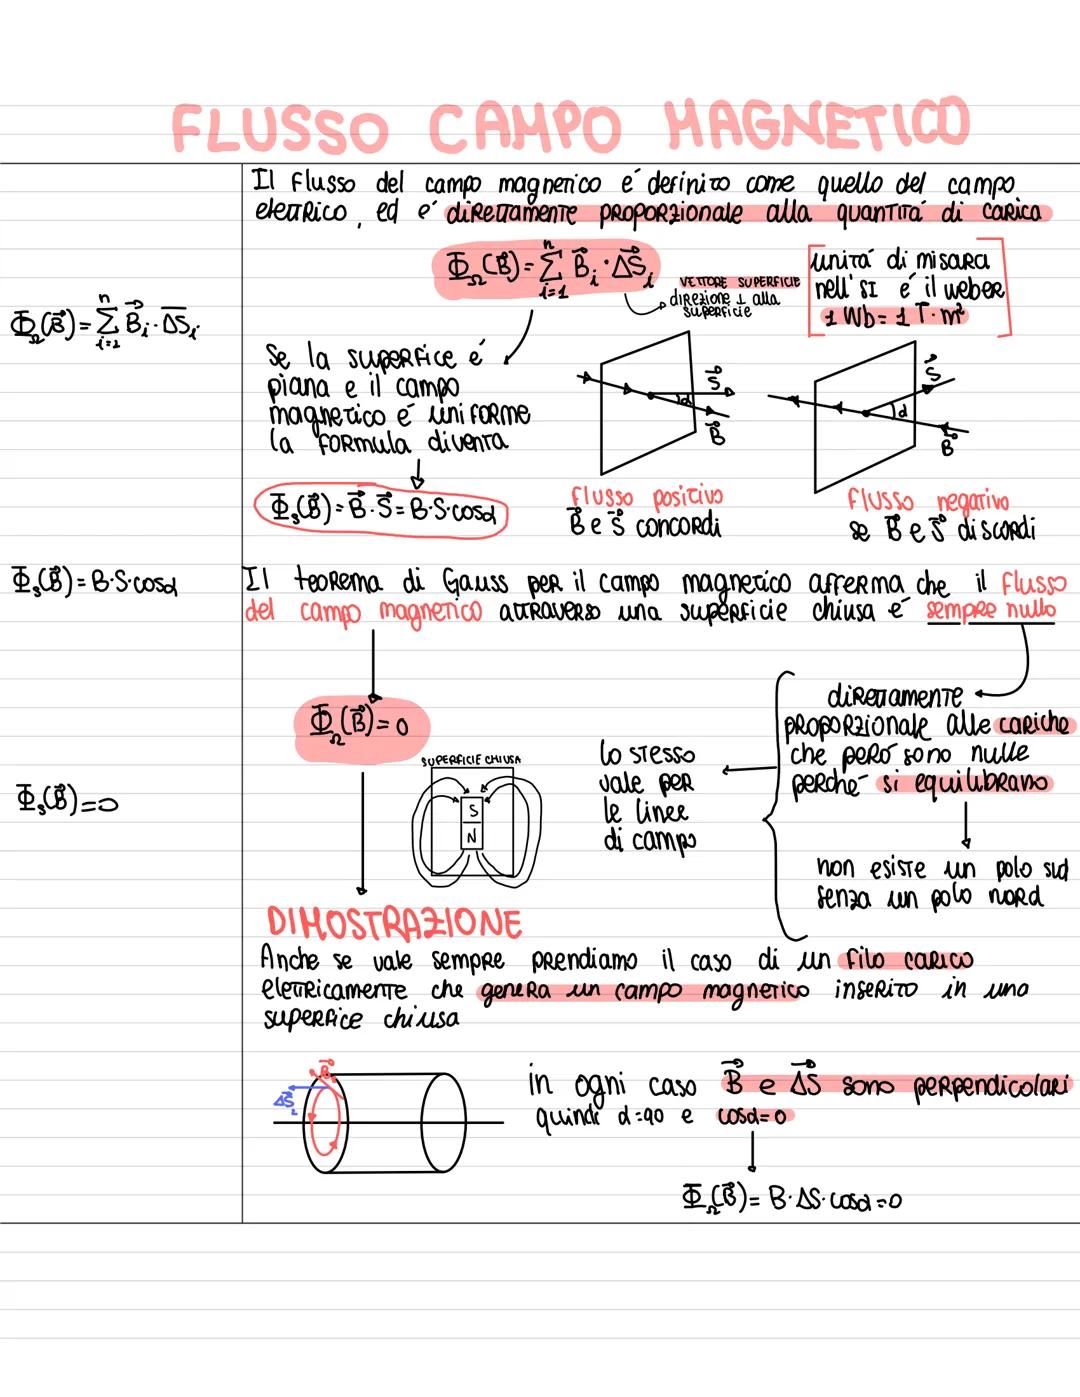 FLUSSO CAMPO MAGNETICO
Il flusso del campo magnetico é definito come quello del campo
elettrico, ed é direttamente proporzionale alla quantitá di carica
Φ_Ω(B⃗)=Σ_{i=1}^{n} B⃗_i·ΔS⃗_i
VETTORE SUPERFICIE
direzione ⊥ alla
superficie
unitá di misura
nell'SI é il weber
1 Wb=1 T·m²
Φ_Ω(B⃗)=Σ_{i=1}^{n} B⃗_i·ΔS_i
Se la superfice é
piana e il campo
magnetico é uniforme
la formula diventa
S⃗
α
B⃗
S⃗
α
B⃗
Φ_s(B⃗)=B⃗·S⃗=B·S·cosα
flusso positivo
B⃗ e S⃗ concordi
flusso negativo
se B⃗ e S⃗ discordi
Φ_s(B⃗)=B·S·cosα
Il teorema di Gauss per il campo magnetico afferma che il flusso
del campo magnetico attraverso una superficie chiusa é sempre nullo
Φ_Ω(B⃗)=0
direttamente
proporzionale alle cariche
che peró sono nulle
perché si equilibrano
lo stesso
vale per
le linee
di campo
SUPERFICIE CHIUSA
S
N
Φ_s(B⃗)=0
non esiste un polo sud
senza un polo nord
DIMOSTRAZIONE
Anche se vale sempre prendiamo il caso di un filo carico
elettricamente che genera un campo magnetico inserito in una
superfice chiusa
B⃗
ΔS⃗
in ogni caso B⃗ e ΔS⃗ sono perpendicolari
quindi α=90 e cosα=0
Φ_Ω(B⃗)= B·ΔS·cosα=0